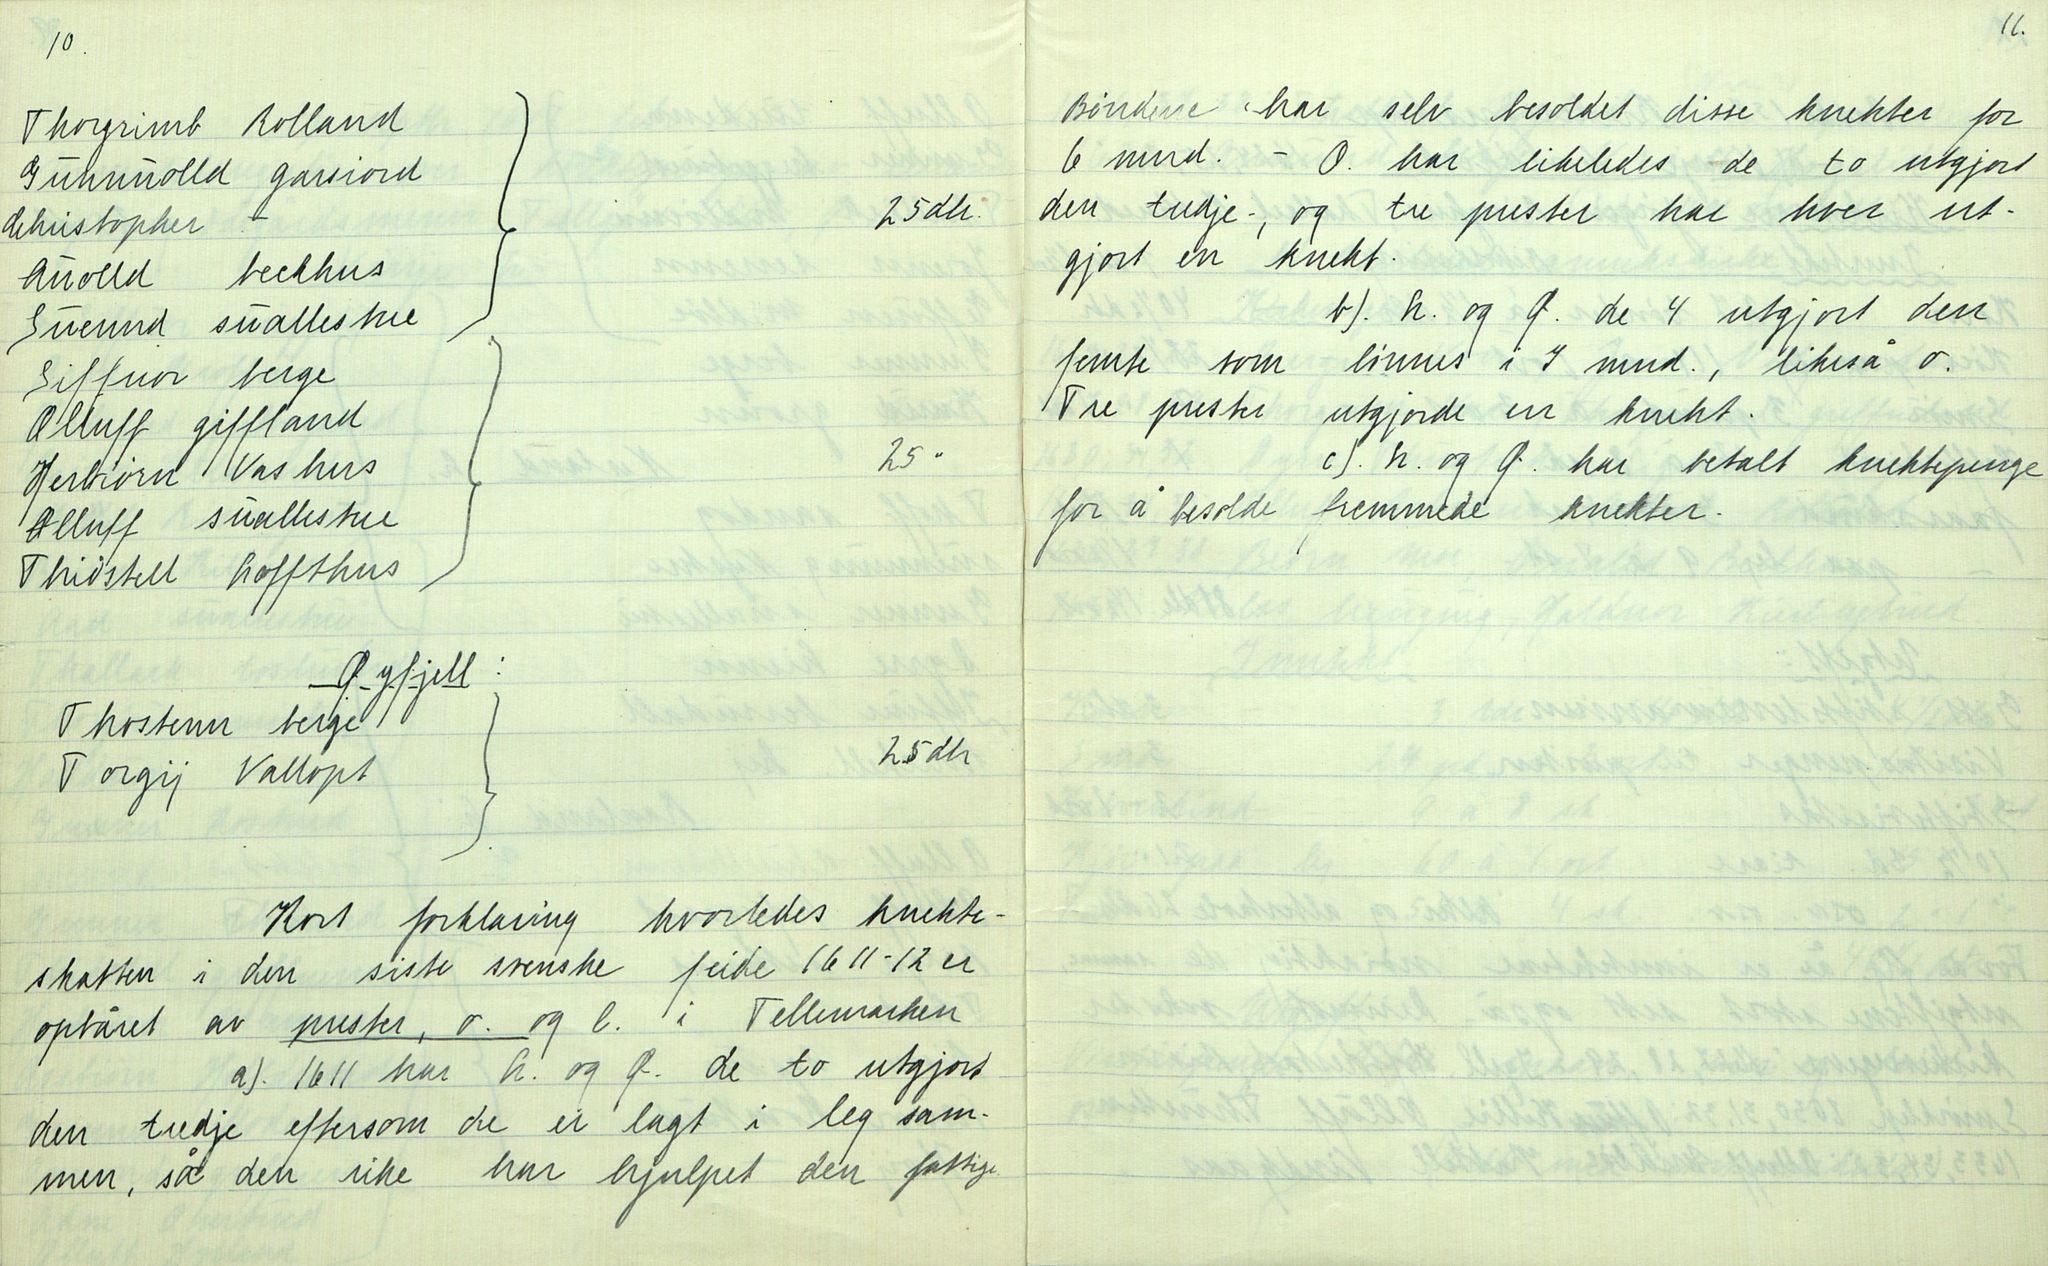 10.
Thorgrimb Rolland
Gunnuolld garsiord
christopher –
Auolld beckhus
Suennd suallestue
25 dlr.
Siffuor berge
Olluff giffland
Herbiørn Vashus
Olluff suallestue
Thiostell hoffthus
25 "
Øyfjell:
Thostenn berge
Torgij Vallopt
25 dlr
Kort forklaring hvorledes knekte-
skatten i den siste svenske feide 1611-12 er
opbåret av prester, o. og l. i Tellemarken
a). 1611 har h. og Ø. de to utgjort
den tredje eftersom de er lagt i leg sam-
men, så den rike har hjulpet den fattige
11.
Bøndene har selv besoldet disse knekter for
6 mnd. – O. har likeledes de to utgjort
den tredje-, og tre prester har hver ut-
gjort en knekt.
b). h. og Ø. de 4 utgjort den
femte som lønnes i 7 mnd., likeså o.
Tre prester utgjorde en knekt.
c). h. og Ø. har betalt knektepenge
for å besolde fremmede knekter.